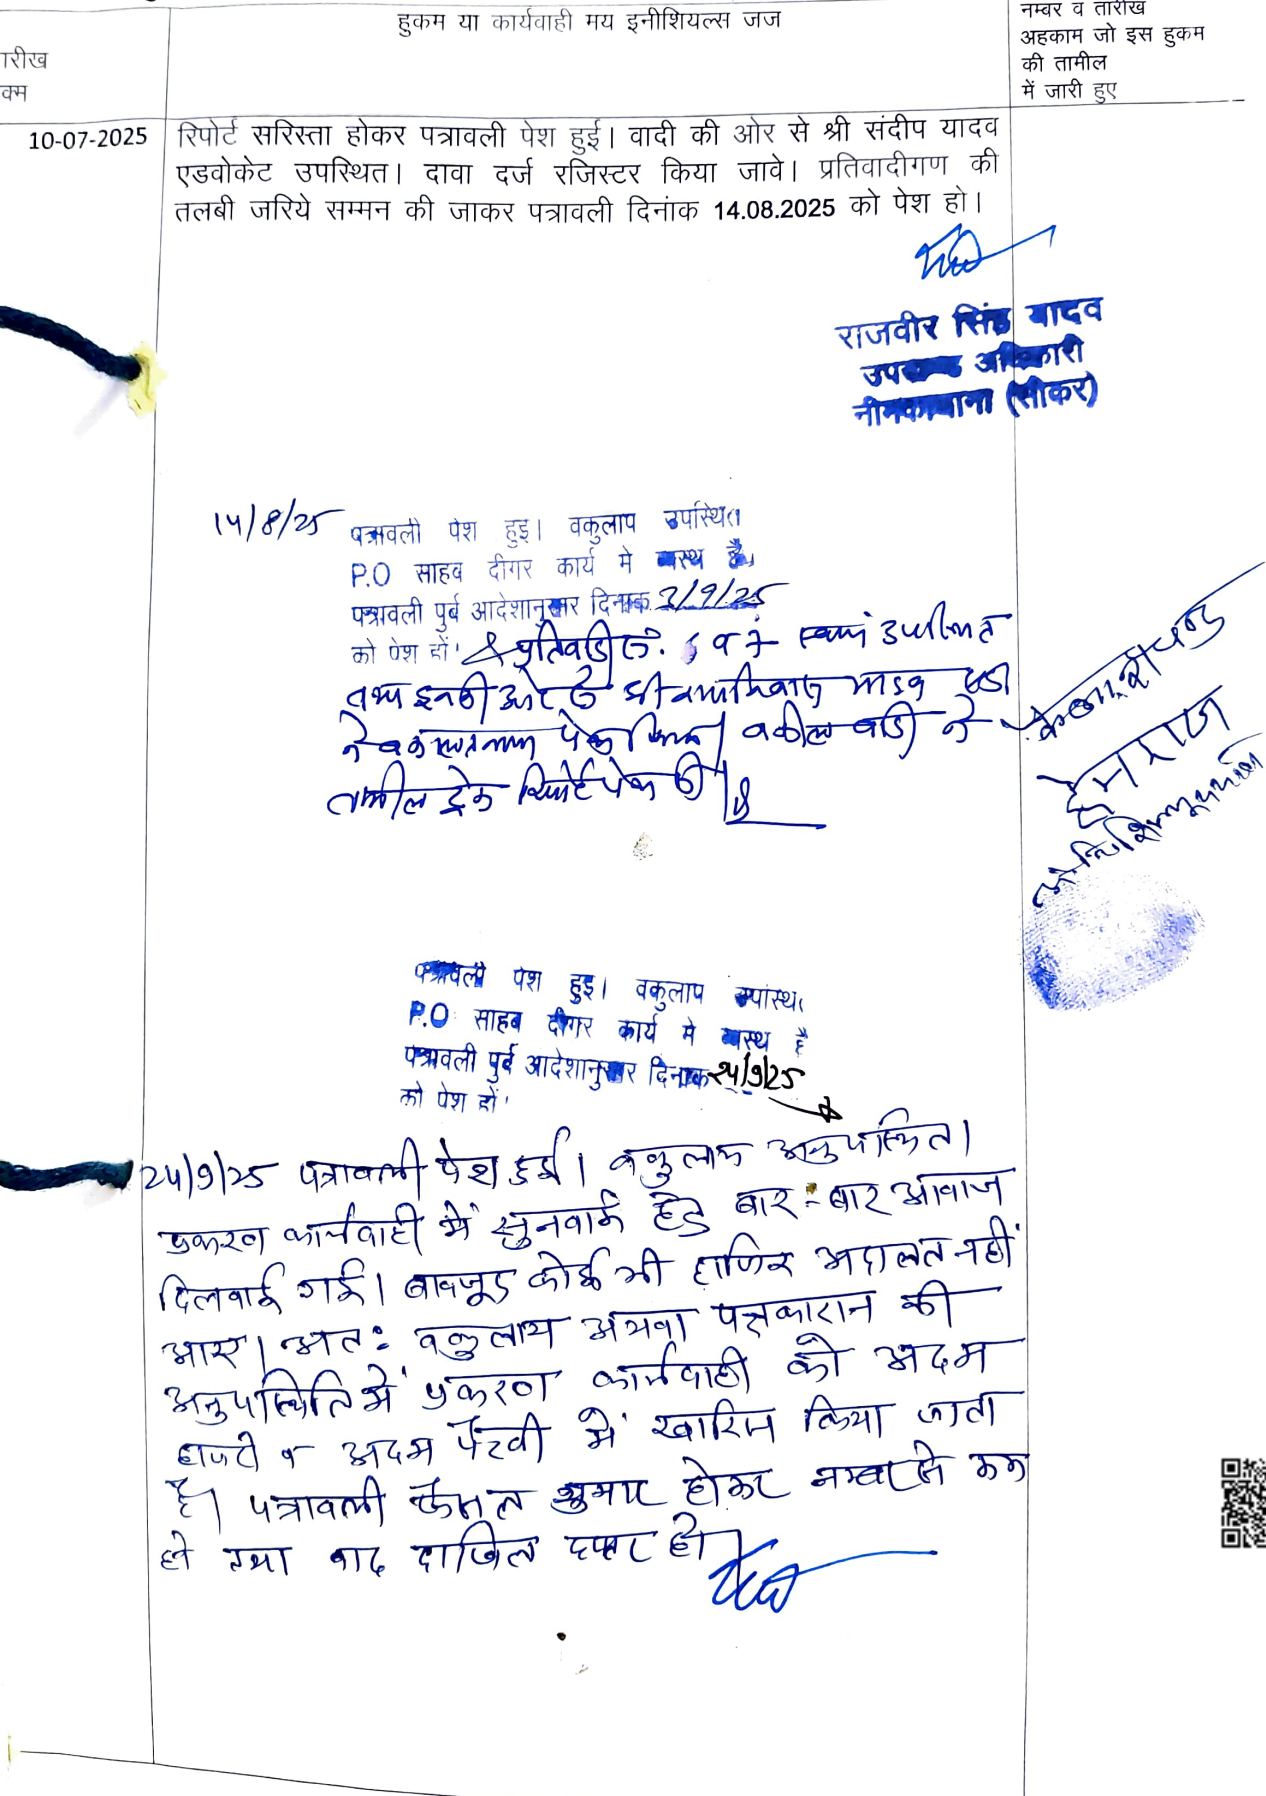 हुकम या कार्यवाही मय इनीशियल्स जज
नम्बर व तारीख
अहकाम जो इस हुकम
की तामील
में जारी हुए
ारीख
क्म
10-07-2025
रिपोर्ट सरिस्ता होकर पत्रावली पेश हुई। वादी की ओर से श्री संदीप यादव
एडवोकेट उपस्थित। दावा दर्ज रजिस्टर किया जावे। प्रतिवादीगण की
तलबी जरिये सम्मन की जाकर पत्रावली दिनांक 14.08.2025 को पेश हो।
राजवीर सिंह यादव
उपखण्ड अधिकारी
नीमकाथाना (सीकर)
14/8/25 पत्रावली पेश हुइ। वकुलाप उपस्थित
P.O साहब दीगर कार्य मे व्यस्थ है
पत्रावली पुर्व आदेशानुसार दिनाक 3/9/25
को पेश हों
प्रतिवादी सं. व स्वयं उपस्थित
तथा इनकी ओर से श्री
ने वकालतनामा पेश किया। वकील वादी ने
तामील ट्रेक रिपोर्ट पेश की।
कैलाशचन्द
हेमराज
पत्रावली पेश हुइ। वकुलाप उपस्थि
P.O साहब दीगर कार्य मे व्यस्थ है
पत्रावली पुर्व आदेशानुसार दिनाक 24/9/25
को पेश हों
24/9/25 पत्रावली पेश हुई। वकुलाय अनुपस्थित।
प्रकरण कार्यवाही में सुनवाई हेतु बार-बार आवाज
दिलवाई गई। बावजूद कोई भी हाजिर अदालत नहीं
आए। अतः वकुलाय अथवा पक्षकारान की
अनुपस्थिति में प्रकरण कार्यवाही को अदम
हाजरी व अदम पैरवी में खारिज किया जाता
है। पत्रावली फैसल शुमार होकर नम्बर से कम
हो तथा बाद दाखिल दफ्तर हो।